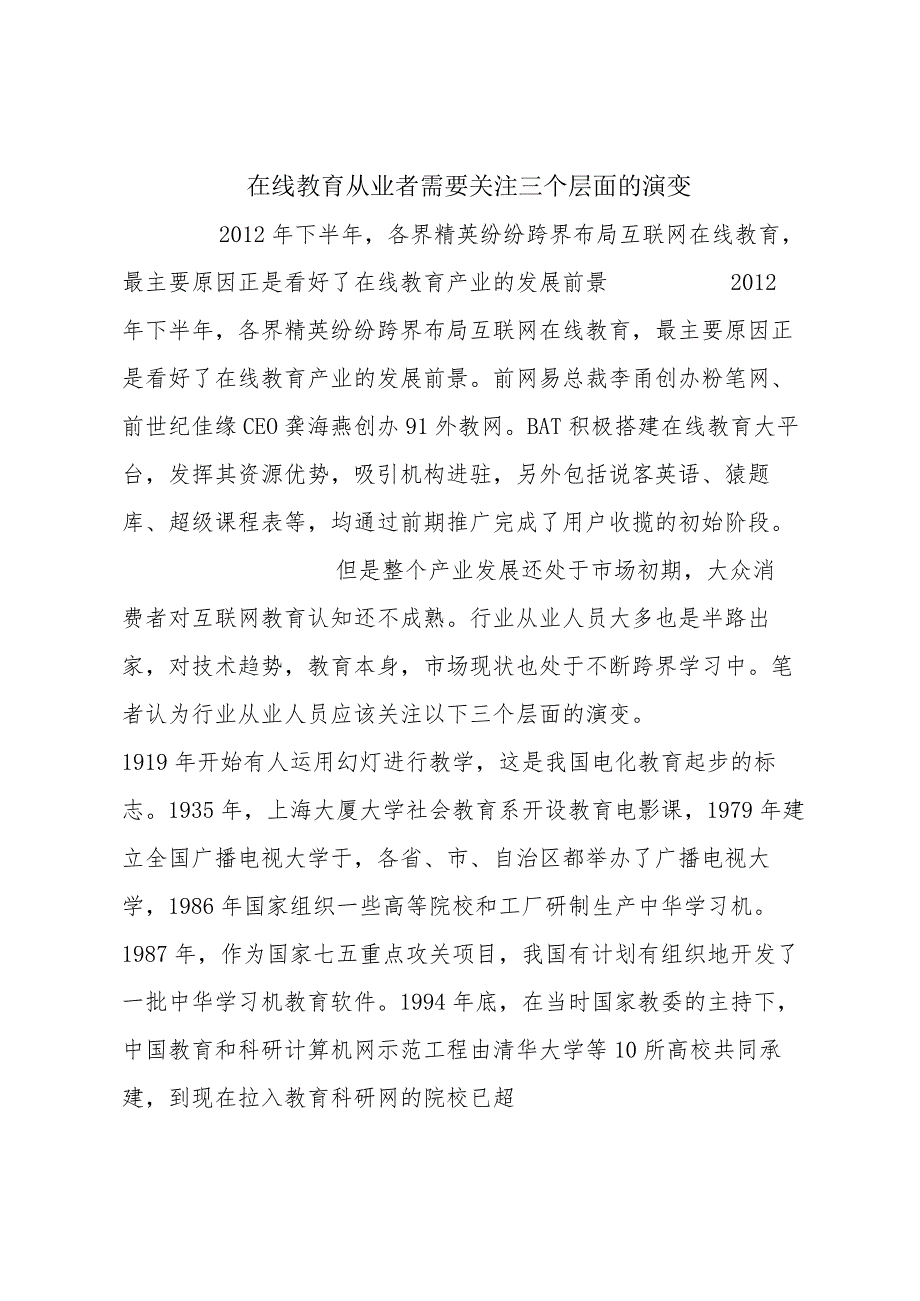 在线教育从业者需要关注三个层面的演变
2012年下半年，各界精英纷纷跨界布局互联网在线教育，
最主要原因正是看好了在线教育产业的发展前景 2012
年下半年，各界精英纷纷跨界布局互联网在线教育，最主要原因正
是看好了在线教育产业的发展前景。前网易总裁李甬创办粉笔网、
前世纪佳缘CEO龚海燕创办91外教网。BAT积极搭建在线教育大平
台，发挥其资源优势，吸引机构进驻，另外包括说客英语、猿题
库、超级课程表等，均通过前期推广完成了用户收揽的初始阶段。
但是整个产业发展还处于市场初期，大众消
费者对互联网教育认知还不成熟。行业从业人员大多也是半路出
家，对技术趋势，教育本身，市场现状也处于不断跨界学习中。笔
者认为行业从业人员应该关注以下三个层面的演变。
1919年开始有人运用幻灯进行教学，这是我国电化教育起步的标
志。1935年，上海大厦大学社会教育系开设教育电影课，1979年建
立全国广播电视大学于，各省、市、自治区都举办了广播电视大
学，1986年国家组织一些高等院校和工厂研制生产中华学习机。
1987年，作为国家七五重点攻关项目，我国有计划有组织地开发了
一批中华学习机教育软件。1994年底，在当时国家教委的主持下，
中国教育和科研计算机网示范工程由清华大学等10所高校共同承
建，到现在拉入教育科研网的院校已超